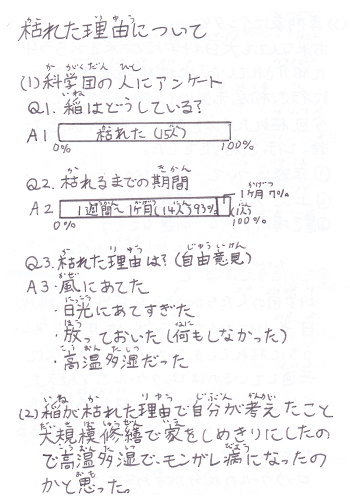 枯れた理由について
(1)科学団の人にアンケート
Q1.稲はどうしている?
A1 枯れた(15人)
0% 100%
Q2.枯れるまでの期間
1ヶ月 7%
A2 1週間〜1ヶ月(14人)93% (1人)
0% 100%
Q3.枯れた理由は?(自由意見)
A3・風にあてた
・日光にあてすぎた
・放っておいた(何もしなかった)
・高温多湿だった
(2)稲が枯れた理由で自分が考えたこと
大規模修繕で家をしめきりにしたの
で高温多湿で、モンガレ病になったの
かと思った。